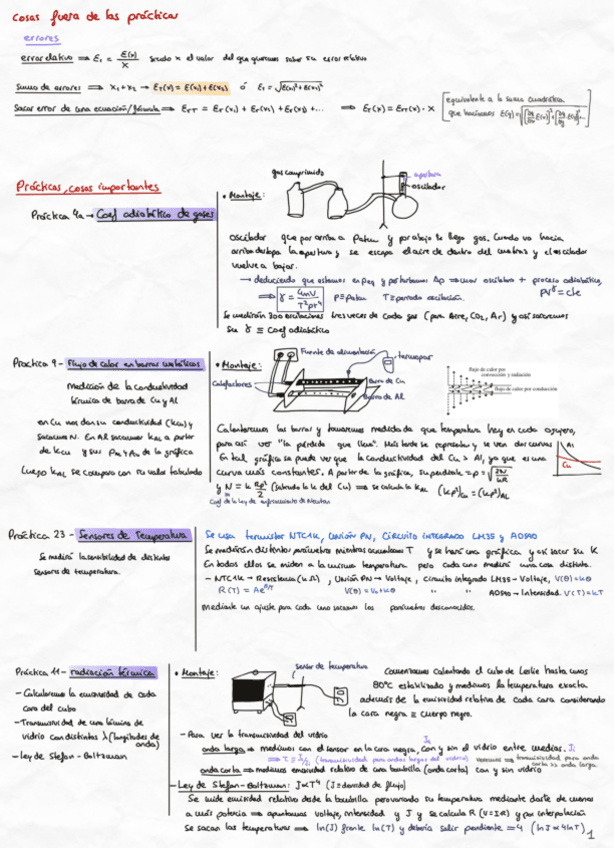 cosas fuera de las prácticas
errores
error relativo ⇒ Er = E(x)/x siendo x el valor del que queremos saber su error relativo
Suma de errores ⇒ x1+x2 → ET(x) = E(x1)+E(x2) ó ET = √E(x1)²+E(x2)²
Sacar error de una ecuación/fórmula ⇒ ErT = Er(x1) + Er(x2) + Er(x3) + ... ⇒ ET(x) = ErT(x) · x
equivalente a la suma cuadrática
que hacíamos
Prácticas, cosas importantes
Práctica 4a → Coef adiabático de gases
• Montaje:
gas comprimido
apertura
oscilador
oscilador que por arriba a Patm y por abajo le llega gas. Cuando va hacia
arriba destapa la apertura y se escapa el aire de dentro del matraz y el oscilador
vuelve a bajar.
→ deduciendo que estamos en Peq y perturbamos Δp ⇒ mov oscilatorio + proceso adiabático,
⇒ γ = 4mV/T²pr⁴ P=Patm T=periodo oscilación. PV^γ = cte
Se medirán 300 oscilaciones tres veces de cada gas (para Aire, CO2, Ar) y así sacaremos
su γ ≡ Coef adiabático
Práctica 9 - Flujo de calor en barras metálicas
medición de la conductividad
térmica de barra de Cu y Al
en Cu nos dan su conductividad (kcu) y
sacamos N. En Al sacamos kAL a partir
de kcu y sus pcu y pAL de la gráfica
Luego kAL se compara con su valor tabulado
• Montaje:
Fuente de alimentación
termopar
Calefactores
Barra de Cu
Barra de AL
flujo de calor por
convección y radiación
flujo de calor por conducción
Calentaremos las barras y tomaremos medida de que temperatura hay en cada agujero,
para así ver "la pérdida que lleva". Más tarde se representa y se ven dos curvas
En tal gráfica se puede ver que la conductividad del Cu > Al, ya que es una
curva más constantes. A partir de la gráfica, su pendiente = p = √2N/kR
y N = k Rp²/2 (sabiendo la k del Cu) ⇒ se calcula la kAL (kp²)Cu = (kp²)AL
Coef de la Ley de enfriamiento de Newton
Al
Cu
Práctica 23 - Sensores de Temperatura
Se medirá la sensibilidad de distintos
sensores de temperatura.
Se usa termistor NTC1K, unión PN, circuito integrado LM35 y AD590
Se medirán distintos parámetros mientras aumentamos T y se hará una gráfica y así sacar su K
En todos ellos se miden a la misma temperatura pero cada uno medirá una cosa distinta.
- NTC1K → Resistencia (kΩ), Unión PN → Voltaje, circuito integrado LM35 - Voltaje, V(θ) = kθ
R(T) = Ae^B/T V(θ) = V0+kθ " " AD590 - Intensidad. V(T) = kT
mediante un ajuste para cada uno sacamos los parámetros desconocidos.
Práctica 11 - radiación térmica
- Calcularemos la emisividad de cada
cara del cubo
- Transmisividad de una lámina de
vidrio con distintos λ (longitudes de
onda)
- ley de Stefan - Boltzman
• Montaje:
sensor de temperatura
Comenzamos calentando el cubo de Leslie hasta unos
80ºC estabilizado y medimos la temperatura exacta
además de la emisividad relativa de cada cara considerando
la cara negra ≡ cuerpo negro.
- Para ver la transmisividad del vidrio
onda larga ⇒ medimos con el sensor en la cara negra, con y sin el vidrio entre medias.
(transmisividad para ondas largas del vidrio) veremos ⇒ transmisividad para onda
corta >> onda larga.
onda corta ⇒ medimos emisividad relativa de una bombilla (onda corta) con y sin vidrio
- Ley de Stefan - Boltzman: J∝T⁴ (J ≡ densidad de flujo)
Se mide emisividad relativa desde la bombilla pero variando su temperatura mediante darle de menos
a más potencia ⇒ apuntamos voltaje, intensidad y J y se calcula R (V=IR) y por interpolación
Se sacan las temperaturas ⇒ ln(J) frente ln(T) y debería salir pendiente = 4 (ln J ∝ 4lnT)
1